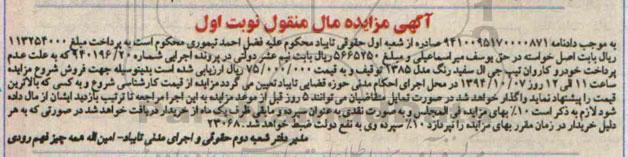 آگهی مزایده مال منقول نوبت اول
به موجب دادنامه ۹۴۱۰۰۹۵۱۷۰۰۰۰۸۷۱ صادره از شعبه اول حقوقی تایباد محکوم علیه فضل احمد تیموری محکوم است به پرداخت مبلغ ۱۱۳۲۵۴۰۰۰
ریال بابت اصل خواسته در حق یوسف میراسماعیلی و مبلغ ۵۶۶۲۵۰ ریال بابت نیم عشر دولتی در پرونده اجرایی شماره ۹۴۰۱۹۶/۲۰ که به علت عدم
پرداخت خودرو کاروان تیپ جی ال سفید رنگ مدل ۱۳۸۵ توقیف و به قیمت ۷۵/۰۰۰/۰۰۰ ریال ارزیابی شده است بدینوسیله جهت فروش شروع مزایده
ساعت ۱۱ الی ۱۲ روز ۱۳۹۴/۱۰/۰۷ در محل اجرای احکام مدنی حوزه قضایی تایباد تعیین می گردد مزایده از قیمت کارشناسی شروع و به کسی که بالاترین
قیمت را پیشنهاد نماید واگذار خواهد شد. در صورت تمایل متقاضیان می توانند ۵ روز قبل از موعد مزایده به این اجرا مراجعه تا ترتیب بازدید ایشان از مال داده
شود لازم به ذکر است ۱۰٪ بهای مزایده فی المجلس و به صورت نقدی به عنوان سپرده و مابقی ظرف یک ماه از خریدار دریافت خواهد شد در صورتی که به هر
دلیل خریدار در زمان مقرر بهای مزایده را نپردازد ۱۰٪ سپرده وی به نفع دولت ضبط خواهد شد. ۲۳۰۶۸
مدیر دفتر شعبه دوم حقوقی و اجرای مدنی تایباد- امین اله همه چیز فهم رودی